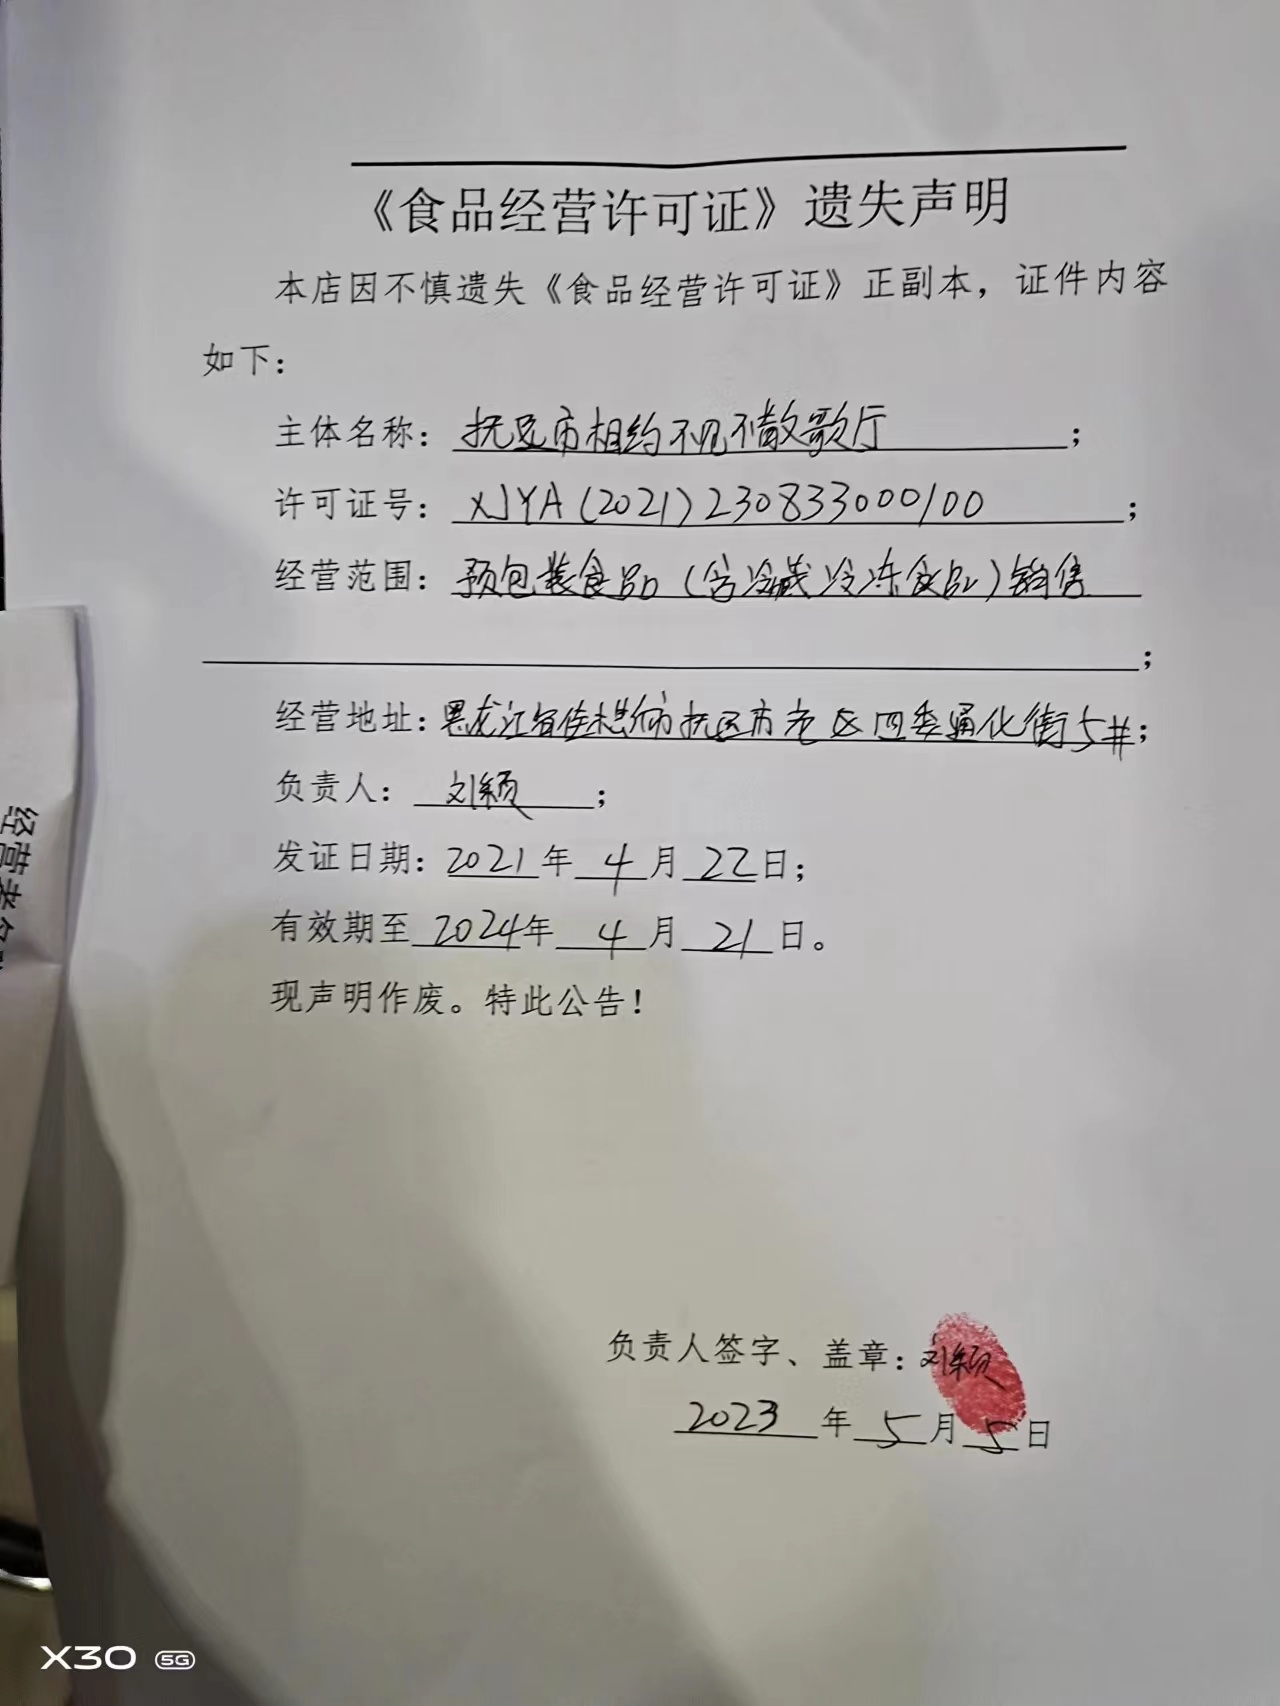 《食品经营许可证》遗失声明
本店因不慎遗失《食品经营许可证》正副本，证件内容
如下：
主体名称：抚远市相约不见不散歌厅；
许可证号：XJYA(2021)23083300100；
经营范围：预包装食品(含冷藏冷冻食品)销售
；
经营地址：黑龙江省佳木斯市抚远市老区四委通化街5#；
负责人：刘颖；
发证日期：2021年4月22日；
有效期至2024年4月21日。
现声明作废。特此公告！
负责人签字、盖章：刘颖
2023年5月5日
经营者名
X30 5G